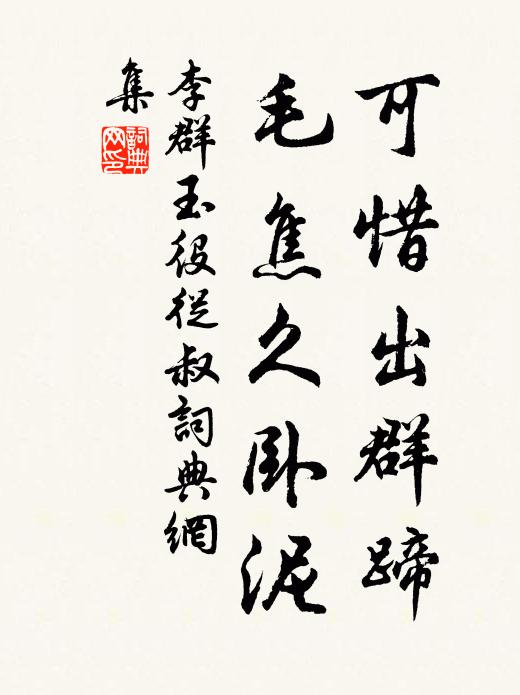 可惜出群蹄
毛焦久卧泥
李群玉役從叔詞典網
集
詞典
网印